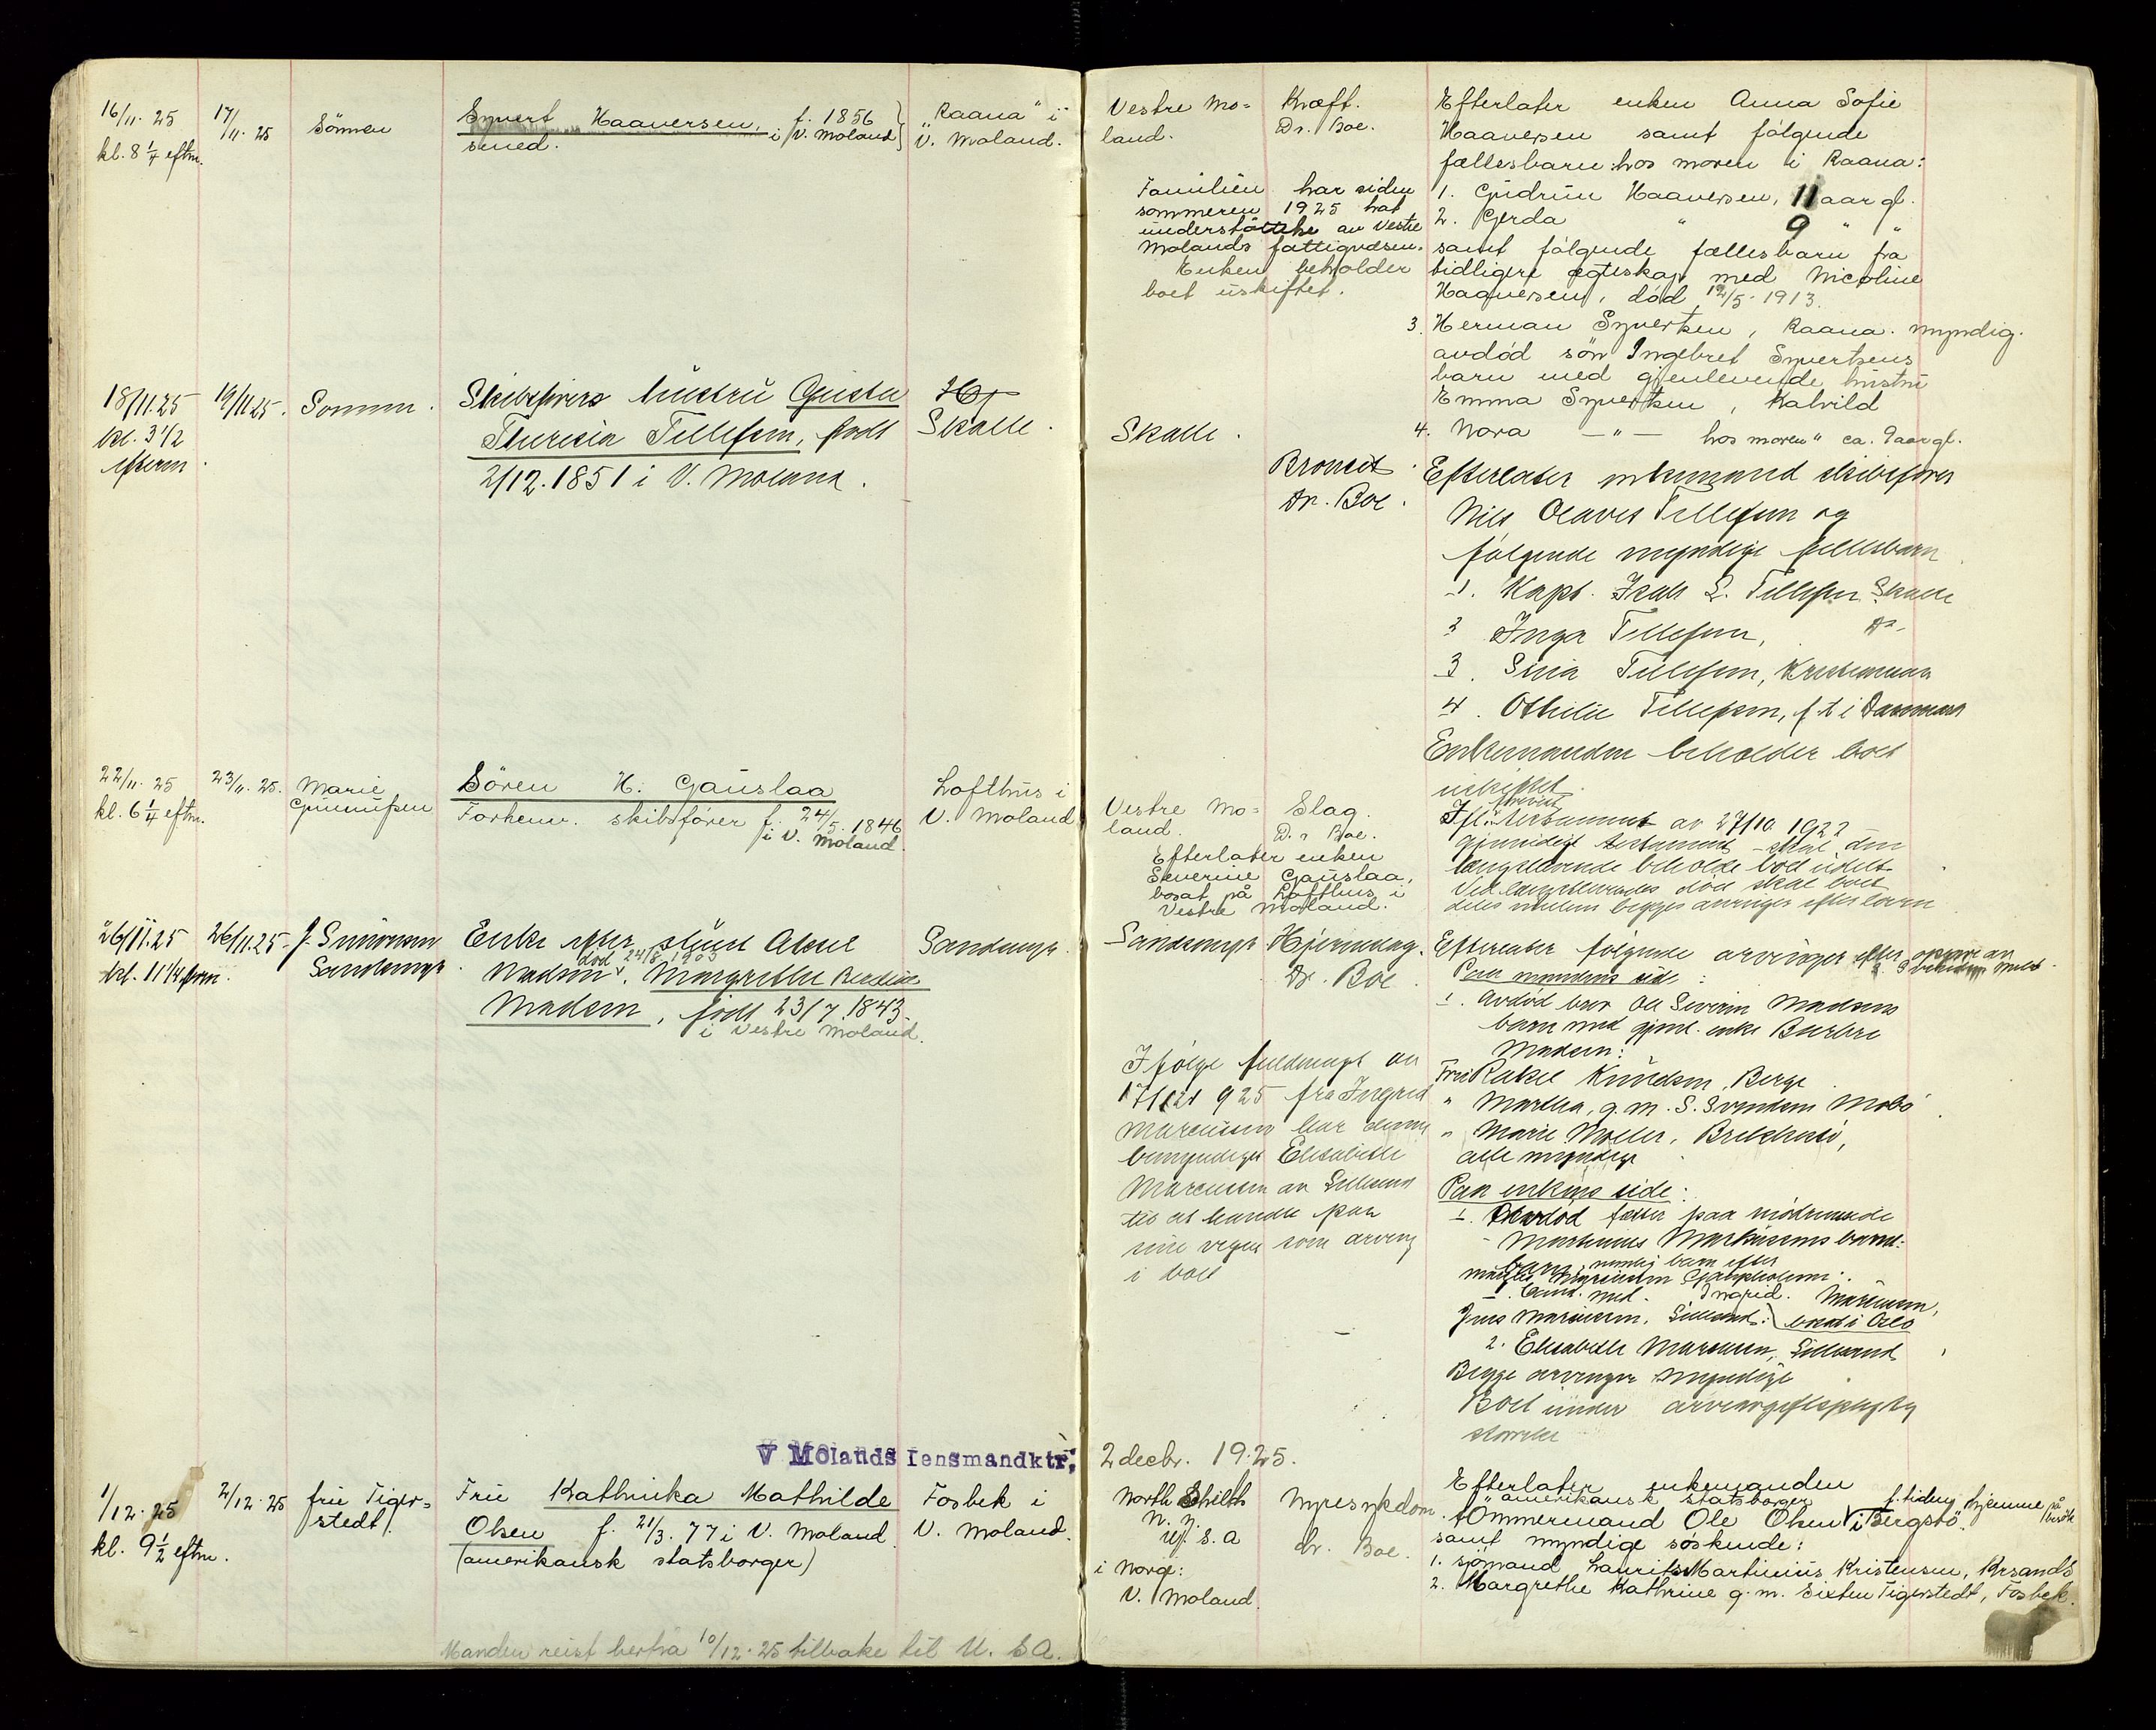 16/11. 25
kl. 8 1/4 eftm.
17/11. 25
Sönnen
Syvert Haaversen, f. 1856
smed. i V. Moland
"Raana" i
V. Moland.
Vestre Mo-
land.
Kræft.
Dr. Boe.
Familien har siden
sommeren 1925 hat
understöttelse av Vestre
Molands fattigvæsen.
Enken beholder
boet uskiftet.
Efterlater enken Anna Sofie
Haaversen samt følgende
fællesbarn hos moren i Raana:
1. Gudrun Haaversen, 11 aar gl.
2. Gerda " 9 " "
samt følgende fællesbarn fra
tidligere egteskap med Nicoline
Haaversen, död 12/5 1913.
3. Herman Syvertsen, Raana. myndig.
avdöd sön Ingebret Syvertsens
barn med gjenlevende hustru
Emma Syvertsen, Kalvild
4. Nora — " — hos moren " ca. 9 aar gl.
18/11.25
kl. 3 1/2
efterm.
19/11 25.
Sønnen.
Skibsførers hustru Gusta
Theresia Tellefsen, født
2/12. 1851 i V. Moland.
Skalle.
Skalle.
Bronkit
Dr. Boe.
Efterlater enkemand skibsfører
Nils Olaves Tellefsen og
følgende myndige fellesbarn
1. Kapt. Isak L. Tellefsen Skalle
2 Inga Tellefsen, Do-
3. Sina Tellefsen, Kristiansand
4. Othilie Tellefsen, f. t. i Danmark
Enkemanden beholder boet
uskiftet.
22/11. 25
kl. 6 1/4 eftm.
23/11. 25.
Marie
Gunnufsen
Sören H. Gauslaa
Forhenv. skibsfører f. 24/5. 1846
i V. Moland.
Lofthus i
V. Moland
Vestre Mo-
land.
Slag.
Dr. Boe.
Efterlater enken
Severine Gauslaa,
bosat på Lofthus i
Vestre Moland.
Ifl. testament av 27/10 1922
gjensidigt testament - skal den
længstlevende beholde boet udelt
Ved længstlevendes död skal boet
deles mellem begges arvinger efter loven
26/11.25
kl. 11 1/4 form.
26/11.25.
J. Simonsen
Sandsmyr.
Enke efter Aksel
død 24/8 1903
Madsen, Margrethe
Madsen, født 23/7 1843.
i Vestre Moland.
Sandsmyr.
Sandsmyr
Hjerneslag.
Dr. Boe.
Ifölge fuldmagt av
17/11 1925 fra Ingrid
Marcussen har denne
bemyndiget Elisabeth
Marcussen av Lillesand
til at handle paa
sine vegne som arving
i boet
Efterlater følgende arvinger efter
Paa mandens side:
1. Avdöd bror Ole Severin Madsens
barn med gjenl. enke Barbra
Madsen:
Fru Rakel Knudsen, Berge
" Martha, g.m. S. Svendsen Molö
" Marie Møller, Brekkestö,
alle myndige
Paa enkens side:
1. Avdöd fætter paa mödrenside
Martinius Markussens barne-
barn, nemlig barn efter
Ingrid Marcussen,
Jens Marcussen, Lillesand. bosat i Oslo
2. Elisabeth Marcussen, Lillesand
Begge arvinger myndige
Boet under arveavgiftspligtig
störrelse
V Molands lensmandktr;
2 decbr. 1925.
1/12. 25
kl. 9 1/2 eftm.
2/12. 25
fru Tiger-
stedt.
Fru Kathinka Mathilde
Olsen f. 21/3. 77 i V. Moland
(amerikansk statsborger)
Fosbek i
V. Moland.
North Shields
N. J.
U. S. A
i Norge:
V. Moland
Nyresykdom.
dr. Boe.
Efterlater enkemanden
amerikansk statsborger
tömmermand Ole Olsen i Bergstö. f. tiden hjemme på besök
samt myndige söskende:
1. sjömand Laurits Martinius Kristensen, Krsand S
2. Margrethe Kathrine g.m. Sixten Tigerstedt, Fosbek.
Manden reist herfra 10/12. 25 tilbake til U. S. A.